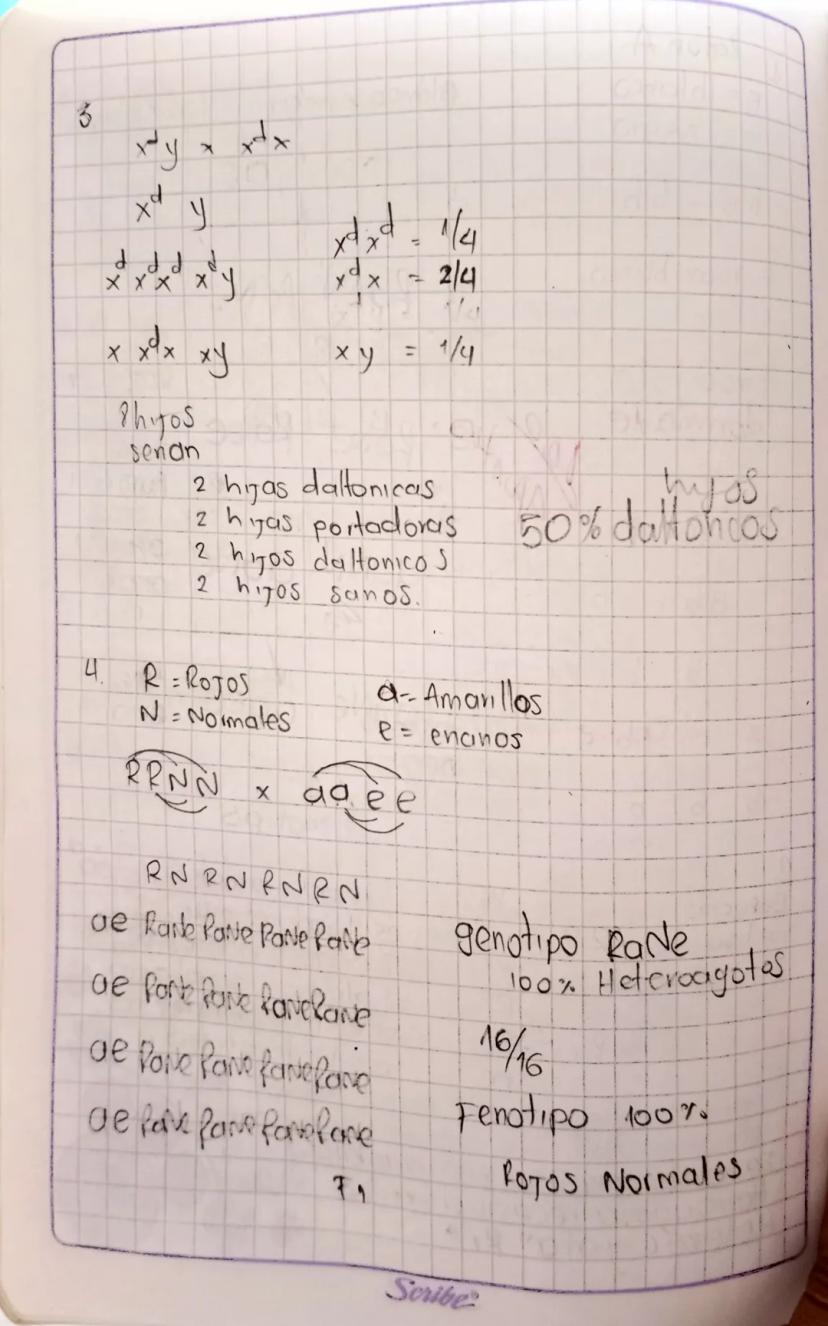 3
x^d y x x^d x
x^d y
x^d x^d x^d x^d y
x x^d x xy
x^d x^d = 1/4
x^d x = 2/4
xy = 1/4
8 hijos
serian
2 hijas daltonicas
2 hijas portadoras
2 hijos daltonicos
2 hijos sanos.
hijos
50% daltonicos
4. R = Rojos
N = Normales
a = Amarillos
e = enanos
RRNN x aaee
RN RN RN RN
ae RaNe RaNe RaNe RaNe
ae RaNe RaNe RaNe RaNe
ae RaNe RaNe RaNe RaNe
ae RaNe RaNe RaNe RaNe
F1
genotipo RaNe
100% Heterocigotos
16/16
Fenotipo 100%
Rojos Normales
Scribe